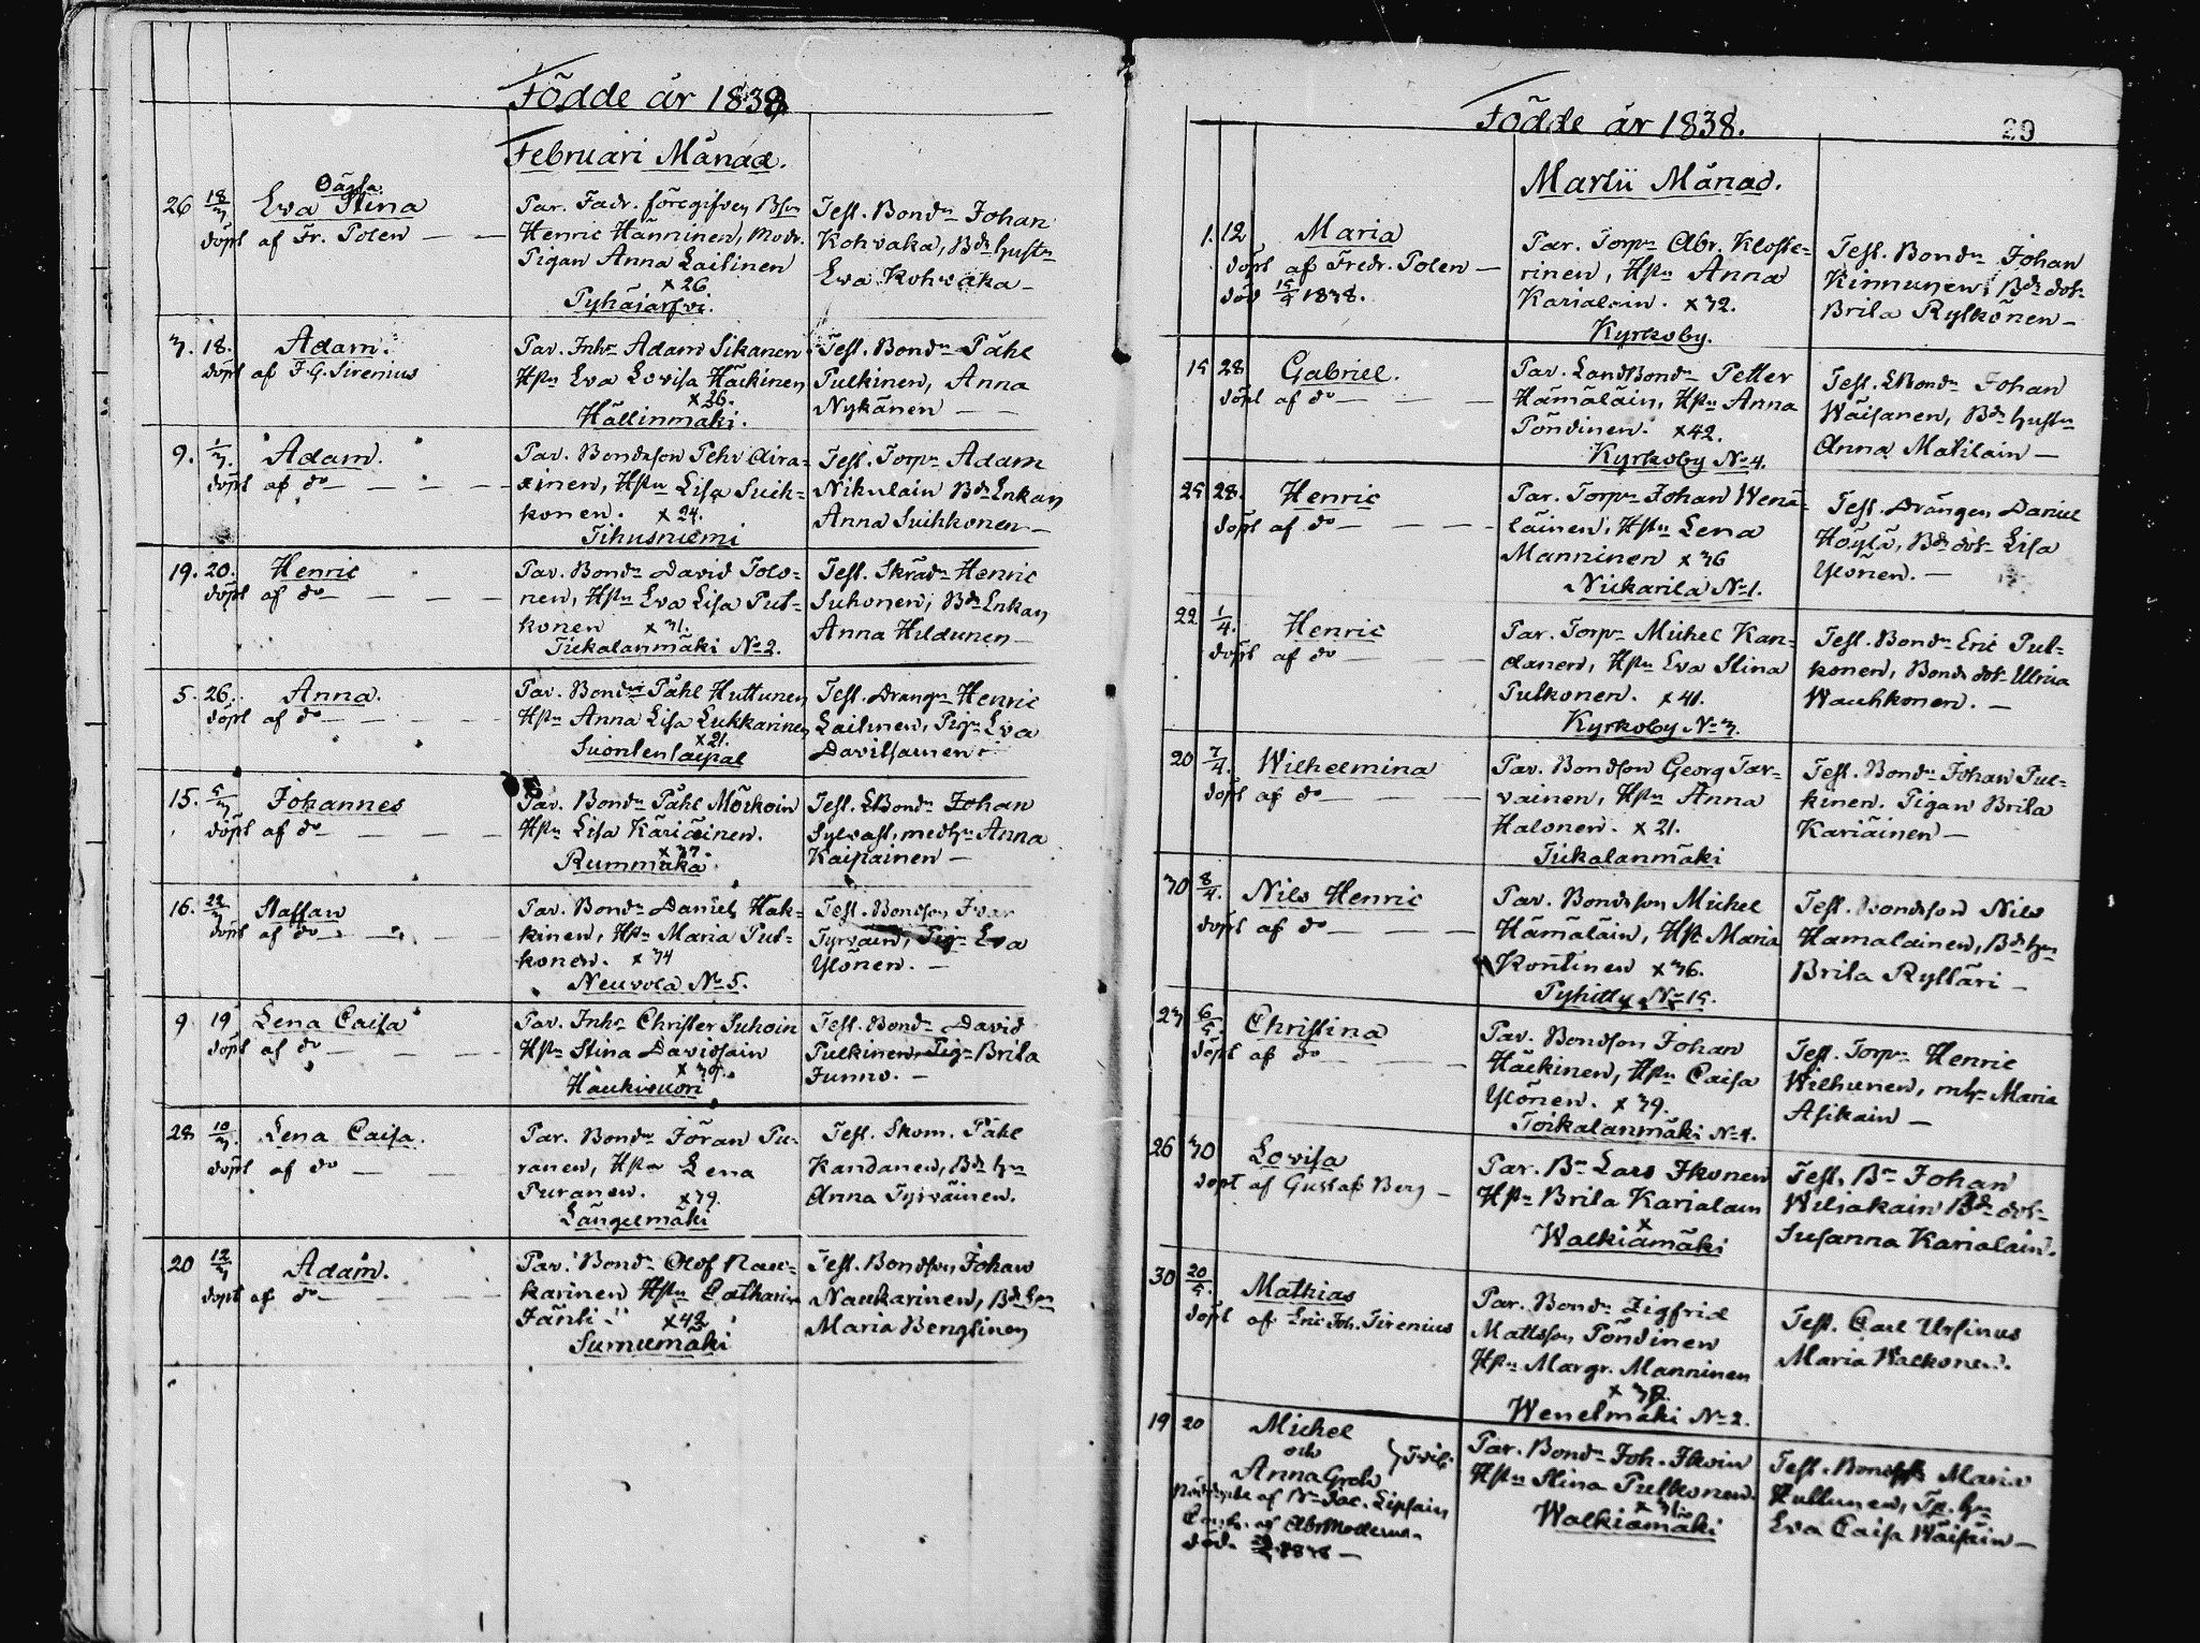 Födde år 1838
Februari Månad.
Oäkta
26 18/3 Eva Stina
döpt af Fr. Polen
Par. Fadr. föregifven
Henric Hänninen, Modr.
Pigan Anna Laitinen
x 26
Pyhäjärfvi.
Test. Bondn Johan
Kohvaka, Bds hustn
Eva Kohvaka
3. 18. Adam.
döpt af F. G. Sirenius
Par. Inhs Adam Sikanen
Hstn Eva Lovisa Häckinen
x 26.
Hällinmäki.
Test. Bondn Påhl
Pulkinen, Anna
Nykänen
9. 1/3. Adam.
döpt af do
Par. Bondeson Pehr Aira=
xinen, Hstn Lisa Suih=
konen. x 24.
Tihusniemi
Test. Torpn Adam
Nikulain Bds Enkan
Anna Suihkonen
19. 20. Henric
döpt af do
Par. Bondn David Tolo=
nen, Hstn Eva Lisa Pul=
konen x 31.
Tuikalanmäki No 2.
Test. Skrädn Henric
Suhonen, Bds Enkan
Anna Hildunen
5. 26. Anna.
döpt af do
Par. Bondn Påhl Huttunen
Hstn Anna Lisa Lukkarinen
x 21.
Suontensalpal
Test. Drängn Henric
Laitinen, Pign Eva
Davitsainen
15. 5/3 Johannes
döpt af do
Par. Bondn Påhl Mörkoin
Hstn Lisa Käriäinen.
x 37.
Rummaka
Test. LBondn Johan
Sylvast, medhn Anna
Kaipainen
16. 22/3 Staffan
döpt af do
Par. Bondn Daniel Hak=
kinen, Hstn Maria Pul=
konen. x 34
Neuvola No 5.
Test. Bondson Ivar
Tyrväin, Pign Eva
Ylönen.
9 19 Lena Caisa
döpt af do
Par. Inhs Christer Suhoin
Hstn Stina Davidsain
x 35.
Haukivuori
Test. Bondn David
Pulkinen, Pign Brita
Junno.
28 10/3. Lena Caisa.
döpt af do
Par. Bondn Jöran Pu=
ranen, Hstn Lena
Puranen. x 39.
Längelmäki
Test. Skom. Påhl
Kandanen, Bds hn
Anna Tyrväinen.
20 12/3 Adam.
döpt af do
Par. Bondn Olof Nau=
karinen Hstn Catharin
Jänti x 42
Surnumäki
Test. Bondson Johan
Naukarinen, Bds hn
Maria Bengtinen
Födde år 1838.
29
Martii Månad.
1. 12 Maria
döpt af Fredr. Polen
död 15/4 1838.
Par. Torpn Abr. Kloste=
rinen, Hstn Anna
Karialain. x 32.
Kyrkoby.
Test. Bondn Johan
Kinnunen, Bds dotr
Brita Rytkönen
15 28 Gabriel.
döpt af do
Par. LandBondn Petter
Hämäläin, Hstn Anna
Pöndinen. x 42.
Kyrkoby No 4.
Test. LBondn Johan
Wäisanen, Bds hustn
Anna Matilain
25 28. Henric
döpt af do
Par. Torpn Johan Wenä=
läinen, Hstn Lena
Manninen x 36
Niskarila No 1.
Test. Drängen Daniel
Höylä, Bds dotr Lisa
Ylönen.
22 1/4. Henric
döpt af do
Par. Torpn Michel Kan=
danen, Hstn Eva Stina
Pulkonen. x 41.
Kyrkoby No 3.
Test. Bondn Eric Pul=
konen, Bonds dotr Ulrica
Wauhkonen.
20 7/4. Wilhelmina
döpt af do
Par. Bondson Georg Tar=
vainen, Hstn Anna
Halonen. x 21.
Tuikalanmäki
Test. Bondn Johan Pul=
kinen. Pigan Brita
Käriäinen
30 8/4. Nils Henric
döpt af do
Par. Bondeson Michel
Hämäläin, Hstn Maria
Kontinen x 36.
Pyhitty No 15.
Test. Bondeson Nils
Hämäläinen, Bds hn
Brita Ryttäri
23 6/5. Christina
döpt af do
Par. Bondson Johan
Häckinen, Hstn Caisa
Ylönen. x 39.
Toikalanmäki No 4.
Test. Torpn Henric
Wilhunen, mhr Maria
Asikain
26 30 Lovisa
döpt af Gustaf Berg
Par. Bn Lars Ikonen
Hstn Brita Karialain
x
Walkiamäki
Test. Bn Johan
Wiliakain Bds dotr
Susanna Karialain.
30 20/5. Mathias
döpt af Eric Joh. Sirenius
Par. Bondn Zigfrid
Mattsson Pöndinen
Hstn Margr. Manninen
Wenelmäki No 2.
Test. Carl Ursinus
Maria Walkonen.
19 20 Michel
och
Anna Greta } Tvil.
Nöddöpte af Bn Jac. Lipsain
Conf. af Abr Moderus
död
Par. Bondn Joh. Ikoin
Hstn Stina Pulkonen.
x 31.
Walkiamäki
Test. Maria
Hullunen, Tp. hn
Eva Caisa Wäisäin